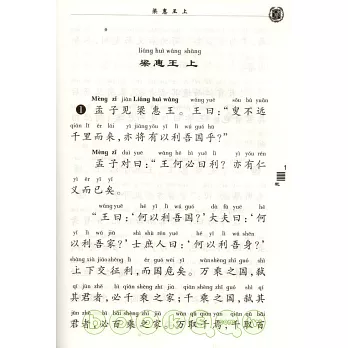 梁惠王上
liáng huì wáng shàng
梁惠王 上
Mèng zǐ jiàn Liáng huì wáng wáng yuē sǒu bù yuǎn
1 孟子见梁惠王。王曰:“叟不远
qiān lǐ ér lái yì jiāng yǒu yǐ lì wú guó hū
千里而来,亦将有以利吾国乎?”
Mèng zǐ duì yuē wáng hé bì yuē lì yì yǒu rén
孟子对曰:“王何必曰利?亦有仁
yì ér yǐ yǐ
义而已矣。
wáng yuē hé yǐ lì wú guó dà fū yuē hé
“王曰:‘何以利吾国?’大夫曰:‘何
yǐ lì wú jiā shì shù rén yuē hé yǐ lì wú shēn
以利吾家?’士庶人曰:‘何以利吾身?’
shàng xià jiāo zhēng lì ér guó wēi yǐ wàn shèng zhī guó shì
上下交征利,而国危矣。万乘之国,弑
qí jūn zhě bì qiān shèng zhī jiā qiān shèng zhī guó shì
其君者,必千乘之家;千乘之国,弑
qí jūn zhě bì bǎi shèng zhī jiā wàn qǔ qiān yān qiān qǔ bǎi
其君者,必百乘之家。万取千焉,千取百
1